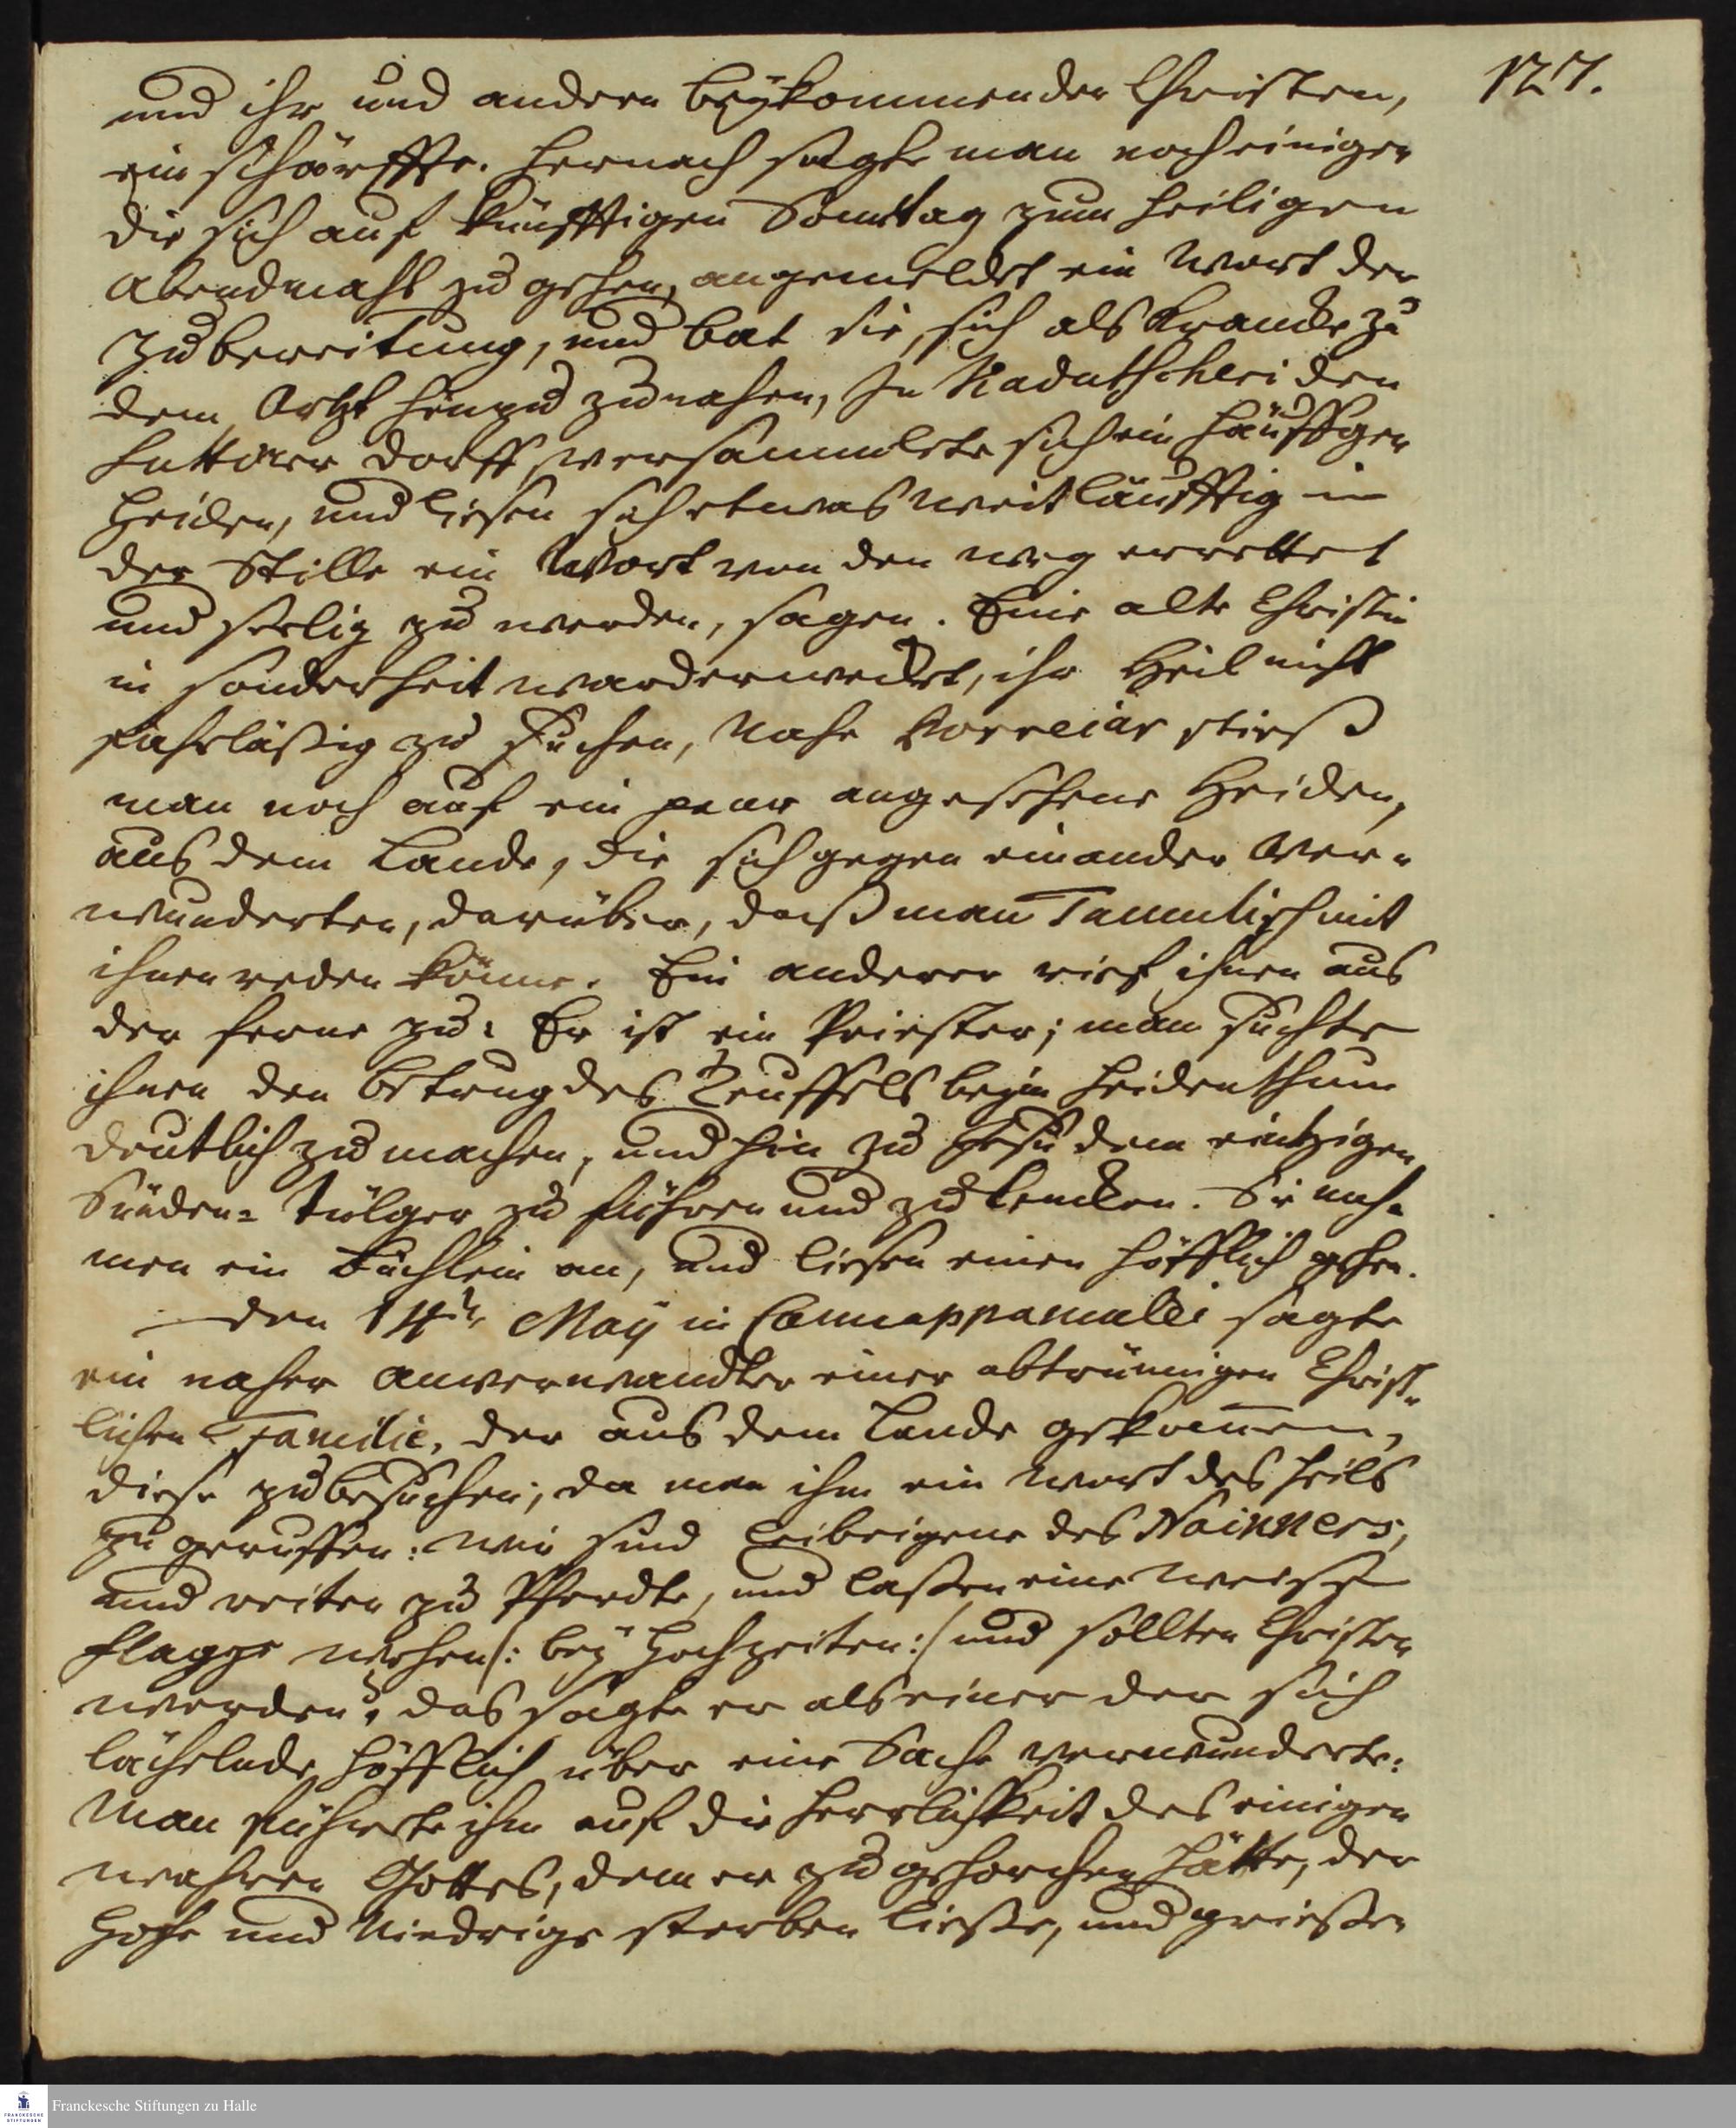 127.
und ihr und andern beykommenden Christen,
ein schärffte. Hernach sagte man noch einigen
die sich auf künfftigen Sonntag zum heiligen
Abendmahl zu gehen, angemeldet ein Wort der
Zubereitung, und bat sie, sich als Krancke zu
dem Artzt hinzu zunahen, In Kadutscheri den
dorff, versammlete sich ein häuffgen
Heiden, und liesen sich etwas weitläufftig in
der Stille ein Wort von den weg errettet
und seelig zu werden, sagen. Eine alte Christin
in sonderheit ward erweckt, ihr Heil nicht
fahrläßig zu suchen, Nahe Porreiar stieß
man noch auf ein paar angesehene Heiden,
aus dem Lande, die sich gegen einander ver-
wunderten, darüber, daß man Tamulisch mit
ihnen reden könne. Ein anderer rief ihnen aus
der ferne zu: Er ist ein Priester; man suchte
ihnen den betrug des Teuffels beym Heidenthum
deutlich zu machen, und hin zu Jesu dem eintzigen
Sünden-Tülger zu führen und zu lencken. Sie nah-
men ein Büchlein an, und liesen einen höfflich gehen.
den 14ten May in sagte
ein naher anverwandter einer abtrünnigen Christ-
lichen Familie, der aus dem Lande gekom̄en,
diese zu besuchen; da man ihm ein wort des heils
zu geruffen: wir sind leibeigene des Nainners,
und reiten zu Pferdte, und laßen eine weisse
flagge wehen /: bey Hochzeiten :/ und sollten Christen
werden? das sagte er als einer der sich
lächelnde höfflich über eine Sache verwunderte.
Man führete ihn auf die Herrlichkeit des einigen
wahren Gottes, dem er zu gehorchen hätte, der
Hohe und Niedrige sterben ließe, und prießen